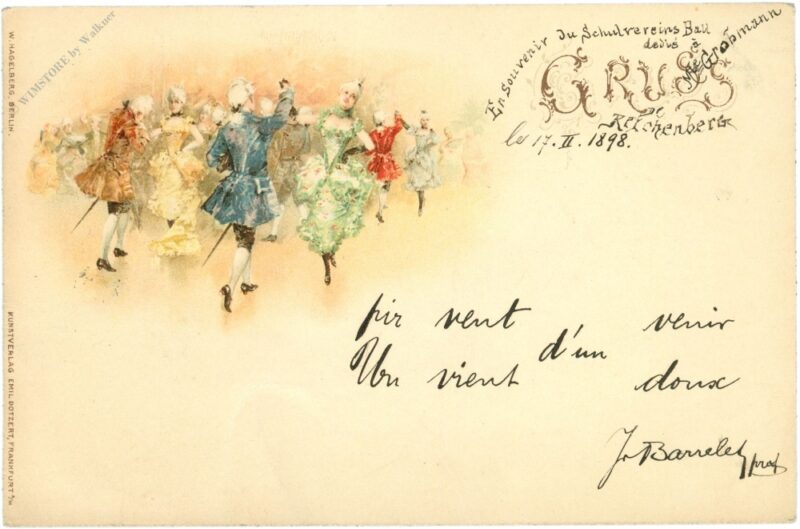 W. HAGELBERG, BERLIN.
WIMSTORE by Walkner
En Souvenir du Schulvereins Ball
dedié à
Mr Grobmann
GRUSS
de
Reichenberg
le 17. II. 1898.
pir vent venir
d'un
Un vient doux
J. Barrelet prof
KUNSTVERLAG EMIL DOTZERT, FRANKFURT a/M